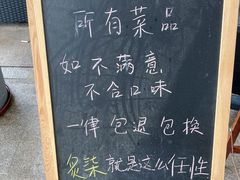 所有菜品
如不满意
不合口味
一律包退包换
炙柒就是这么任性